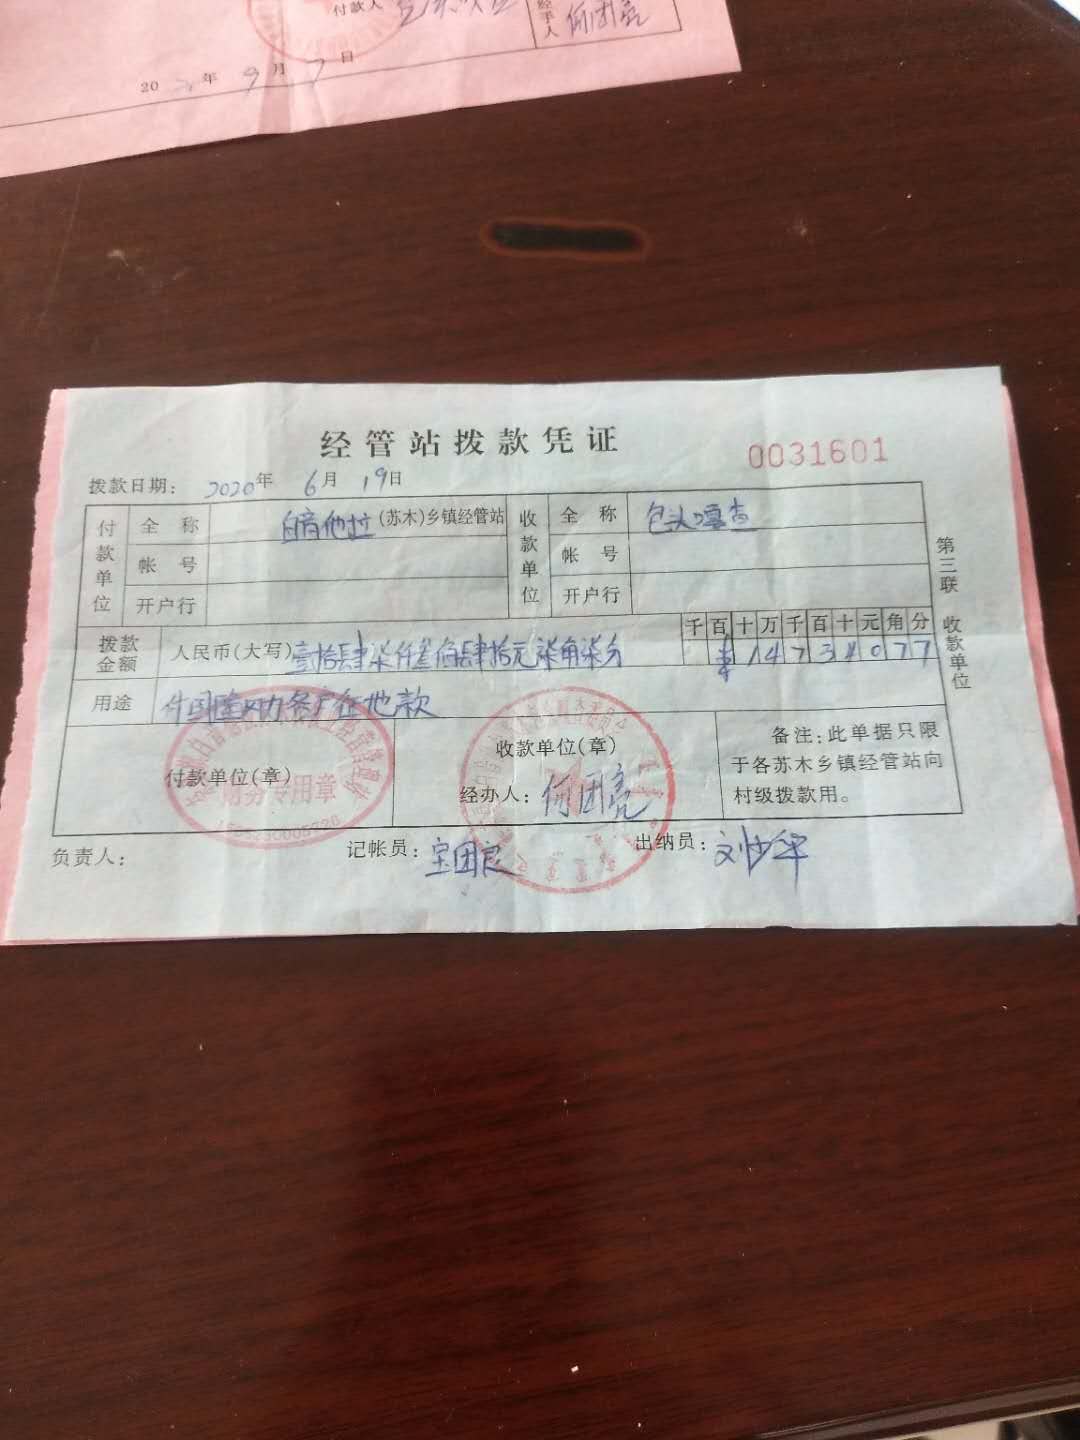 付款人
经手人 何团亮
20 年 9 月 7 日
经管站拨款凭证
0031601
拨款日期： 2020年 6月 19日
付款单位 全称 白音他拉(苏木)乡镇经管站 收款单位 全称 包头嘎查
帐号 帐号
开户行 开户行
第三联 收款单位
拨款金额 人民币(大写) 壹拾肆万柒仟叁佰肆拾元柒角柒分 千百十万千百十元角分
¥14734077
用途 征地款
付款单位(章)
财务专用章
收款单位(章)
经办人： 何团亮
备注：此单据只限
于各苏木乡镇经管站向
村级拨款用。
负责人： 记帐员： 宝团良 出纳员： 刘少华